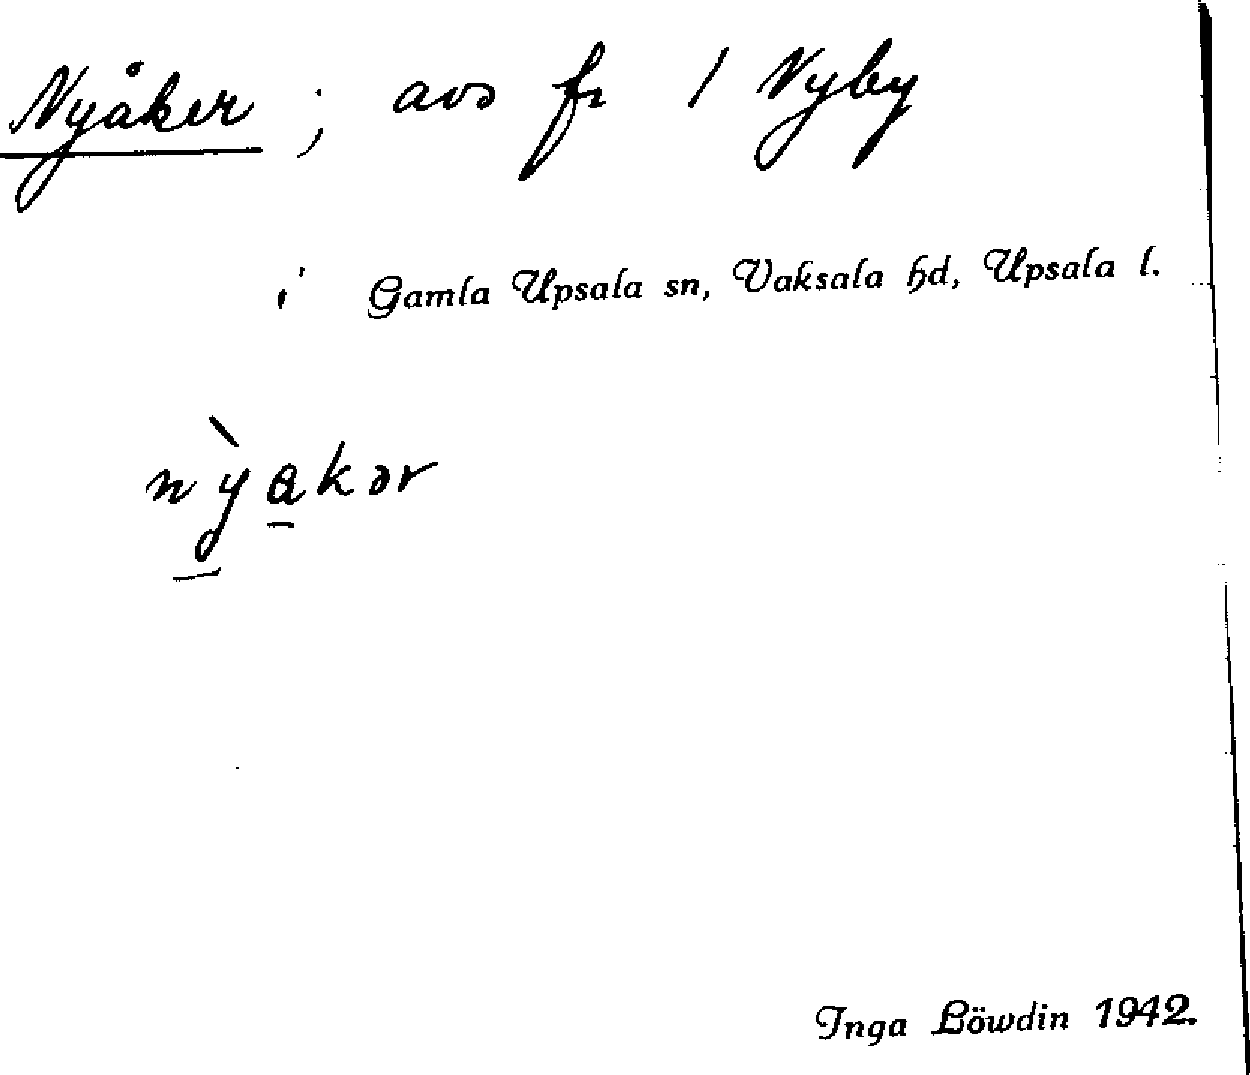 Nyåker ; avs fr 1 Nyby
i Gamla Upsala sn, Vaksala hd, Upsala l.
nỳ̠a̠kər
Inga Löwdin 1942.